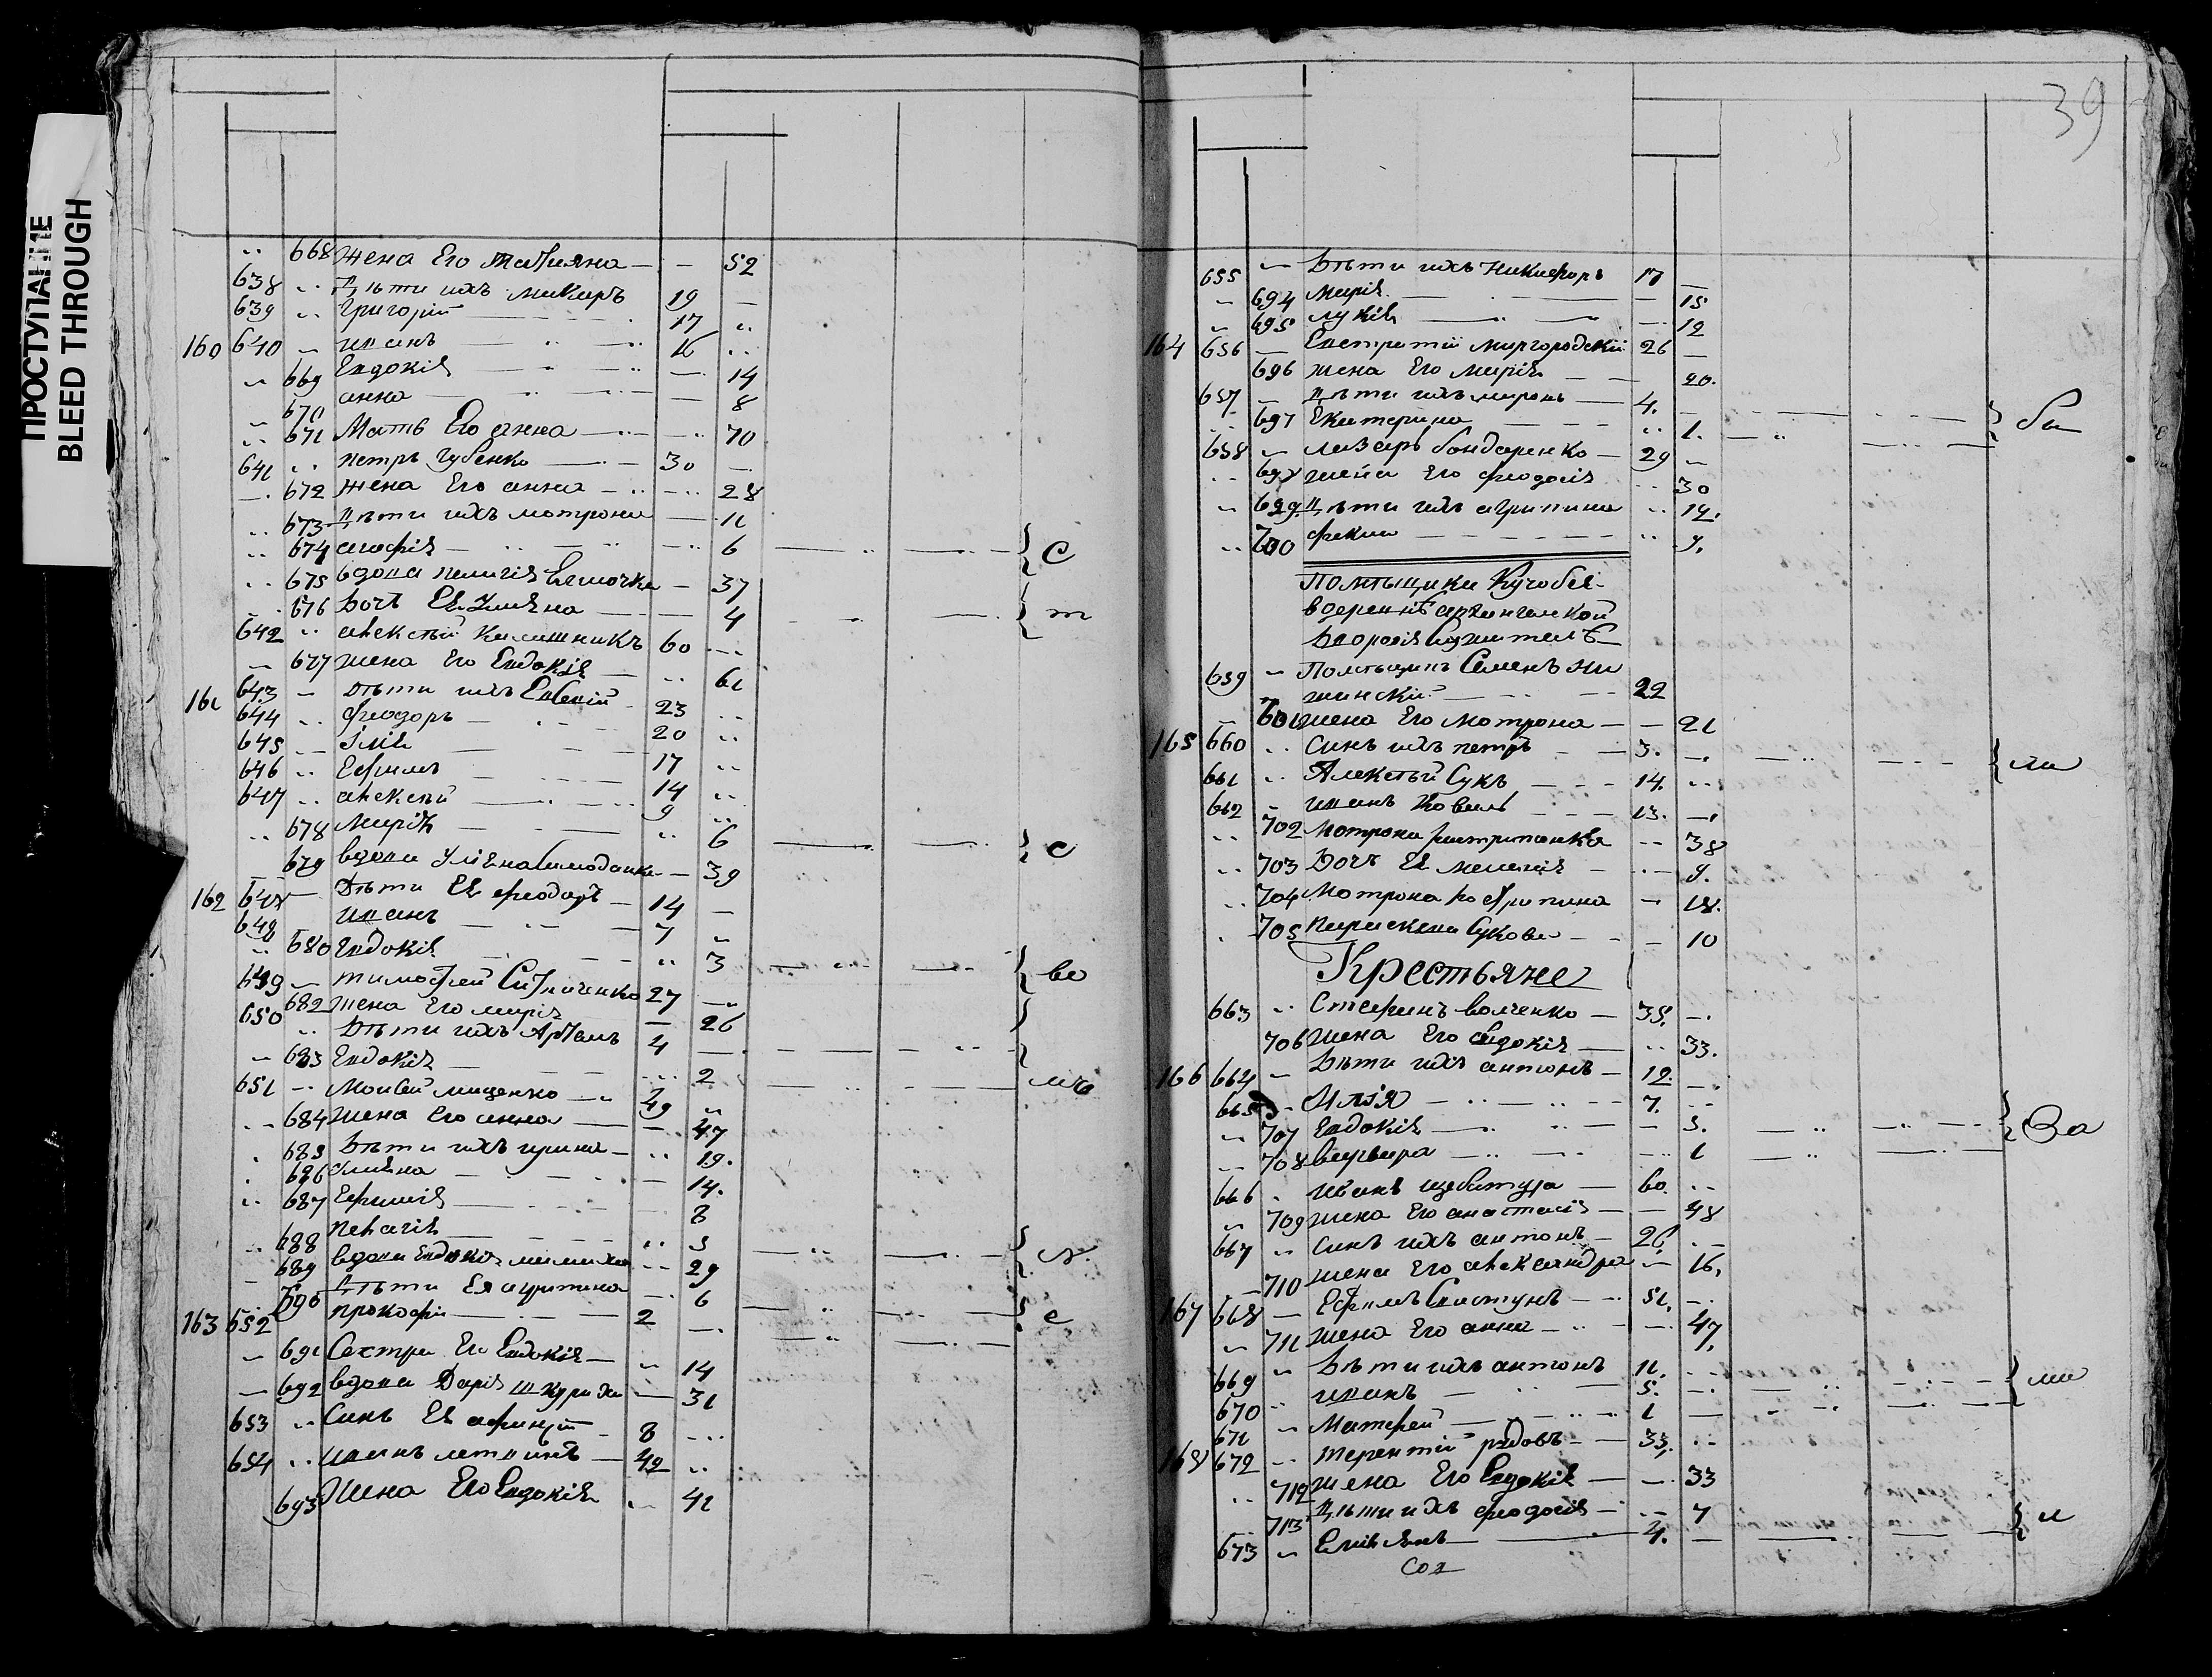 ПРОСТУПАНИЕ
BLEED THROUGH
668 жена Его татияна 52
638 Дѣти ихъ макаръ 19
639 григорій 17
160 640 иванъ 16
669 Евдокія 14
670 анна 8
671 Мать Его анна 70
641 петръ губенко 30
672 жена Его анна 28
673 Дѣти ихъ мотрона 11
674 агафія 6 С
675 вдова пелагія 37
676 Дочь Ея Уліяна 4 т
642 алексѣй калашникъ 60
677 жена Его Евдокія 61
161 643 Дѣти ихъ Евсеій 23
644 феодоръ 20
645 Ілія 17
646 Ефимъ 14
647 алексѣй 9
678 марія 6 с
679 вдова Уліяна 39
162 648 Дѣти Ея феодоръ 14
648 иванъ 7
680 Евдокія 3
649 тимофей 27 ве
682 жена Его марія 26
650 Дѣти ихъ Артемъ 4
683 Евдокія 2
651 Моисей маценко 49
684 жена Его анна 47
685 Дѣти ихъ ирина 19.
686 Уліяна 14.
687 Ефимія 8
688 Пелагія 3
689 вдова Евдокія 29
690 Дѣти Ея агрипина 6
163 652 прокофій 2 с
691 Сестра Его Евдокія 14
692 вдова Дарія шкуриха 31
653 Синъ Ея 8
654 иванъ 42
693 Жена Его Евдокія 41
39
655 Дѣти ихъ Никифоръ 17
694 марія 15
695 лукія 12
164 656 Евстратій миргородскій 26
696 жена Его марія 20.
657 Дѣти ихъ миронъ 4.
697 Екатерина 1. ба
658 лазаръ бондаренко 29
698 жена Его феодосія 30
699 Дѣти ихъ агрипина 14.
700 фекла 9.
Помѣщики Кучобея
659 Помѣщикъ Семенъ Ни
жинскій 22
601 жена Его мотрона 21
165 660 Синъ ихъ петръ 3.
661 Алексѣй Сукъ 14. ма
662 иванъ Коваль 13.
702 Мотрона 38
703 Дочь Ея мелания 9.
704 Мотрона 18.
705 параскева Сукова 10
Крестьяне
663 Стефанъ волченко 35.
706 жена Его Евдокія 33.
166 664 Дѣти ихъ антонъ 12.
665 Илія 7.
707 Евдокія 3. За
708 варвара 1
666 иванъ щебатура 60.
709 жена Его анастасія 48
667 Синъ ихъ антонъ 26.
710 жена Его александра 16.
167 668 Ефимъ Свистунъ 51.
711 жена Его анна 47.
669 Дѣти ихъ антонъ 11.
670 иванъ 5. ма
671 Матфей 1
168 672 терентій рядовъ 33.
712 жена Его Евдокія 33
713 Дѣти ихъ феодосія 7
673 Емілянъ 4. и